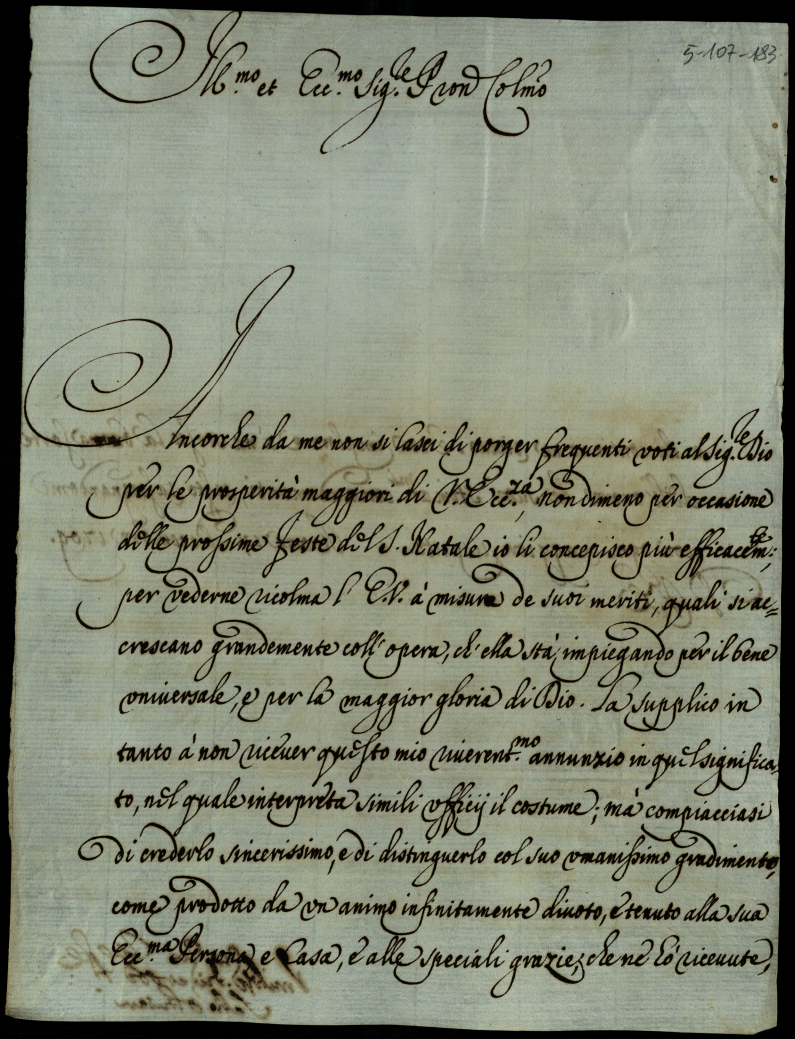 5-107-183
Ill.mo et Ecc.mo Sig.re P.ron Col.mo
Ancorche da me non si lasci di porger frequenti voti al Sig.re Dio
per le prosperità maggiori di V. Ecc.za, nondimeno per occasione
delle prossime feste del S. Natale io li concepisco più efficacem.te;
per vederne ricolma l' E.V. à misura de suoi meriti, quali si ac=
crescano grandemente coll' opera, ch' ella stà impiegando per il bene
vniuersale, e per la maggior gloria di Dio. La supplico in
tanto à non riceuer questo mio riuerent.mo annunzio in quel significa=
to, nel quale interpreta simili vfficij il costume; mà compiacciasi
di crederlo sincerissimo, e di distinguerlo col suo vmanissimo gradimento,
come prodotto da vn animo infinitamente diuoto, e tenuto alla sua
Ecc.ma Persona e Casa, e alle speciali grazie, che nè hò riceuute,